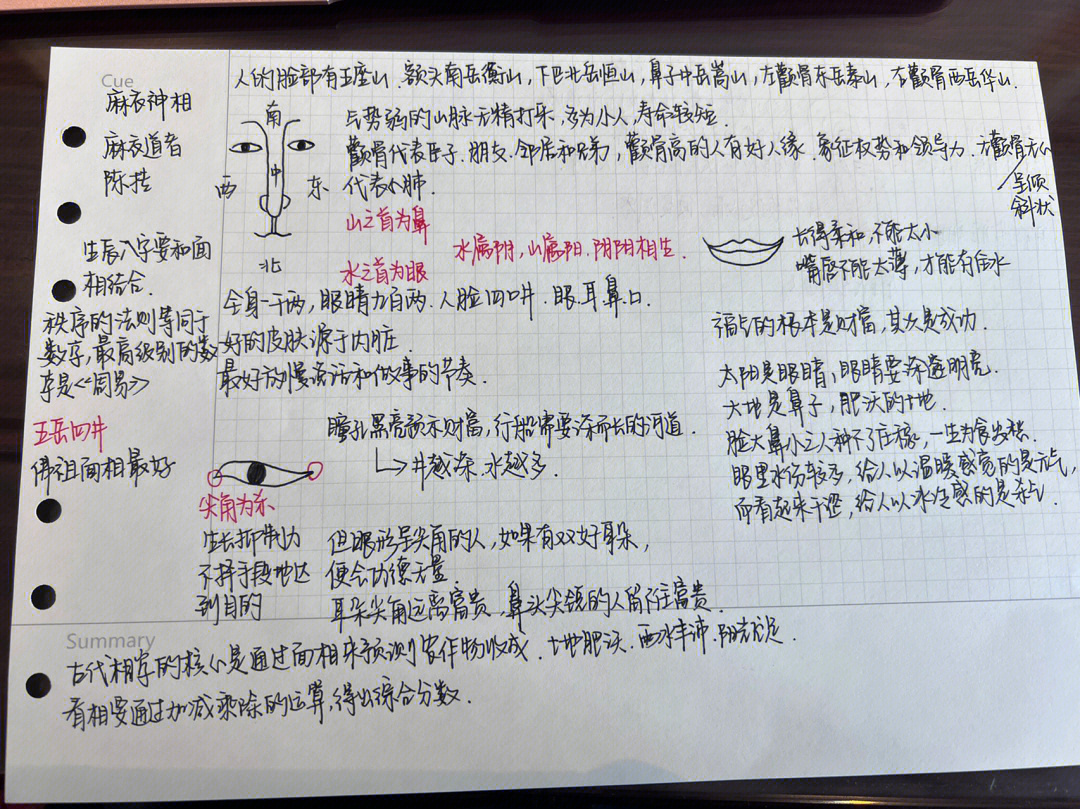 Cue
麻衣神相
麻衣道者
陈抟
生辰八字要和面
相结合.
秩序的法则等同于
数字,最高级别的数
字是《周易》
五岳四井
佛祖面相最好
人的脸部有五座山.额头南岳衡山,下巴北岳恒山,鼻子中岳嵩山,左颧骨东岳泰山,右颧骨西岳华山.
南
西
中
东
北
气势弱的山脉无精打采,多为小人,寿命较短.
颧骨代表臣子.朋友.邻居和兄弟,颧骨高的人有好人缘.象征权势和领导力.
代表心肺.
呈倾
斜状
山之首为鼻
水之首为眼
水属阴,山属阳.阴阳相生.
长得柔和,不能太小
嘴唇不能太薄,才能有住水
全身一千两,眼睛九百两.人脸四口井.眼.耳.鼻.口.
好的皮肤源于内脏.
最好放慢说话和做事的节奏.
福气的根本是财富,其次是成功.
太阳是眼睛,眼睛要深邃明亮.
大地是鼻子,肥沃的土地.
脸大鼻小之人种不了庄稼,一生为食发愁.
眼里水份较多,给人以温暖感觉的是元气,
而看起来干涩,给人以冰冷感的是杀气.
瞳孔黑亮预示财富,行船需要深而长的河道.
井越深.水越多.
尖角为杀
生长抑制力
不择手段地达
到目的
但眼形呈尖角的人,如果有双好耳朵,
便会功德无量.
耳朵尖角远离富贵,鼻头尖锐的人留不住富贵.
Summary
古代相学的核心是通过面相来预测农作物收成.土地肥沃.雨水丰沛.阳光充足.
看相要通过加减乘除的运算,得出综合分数.